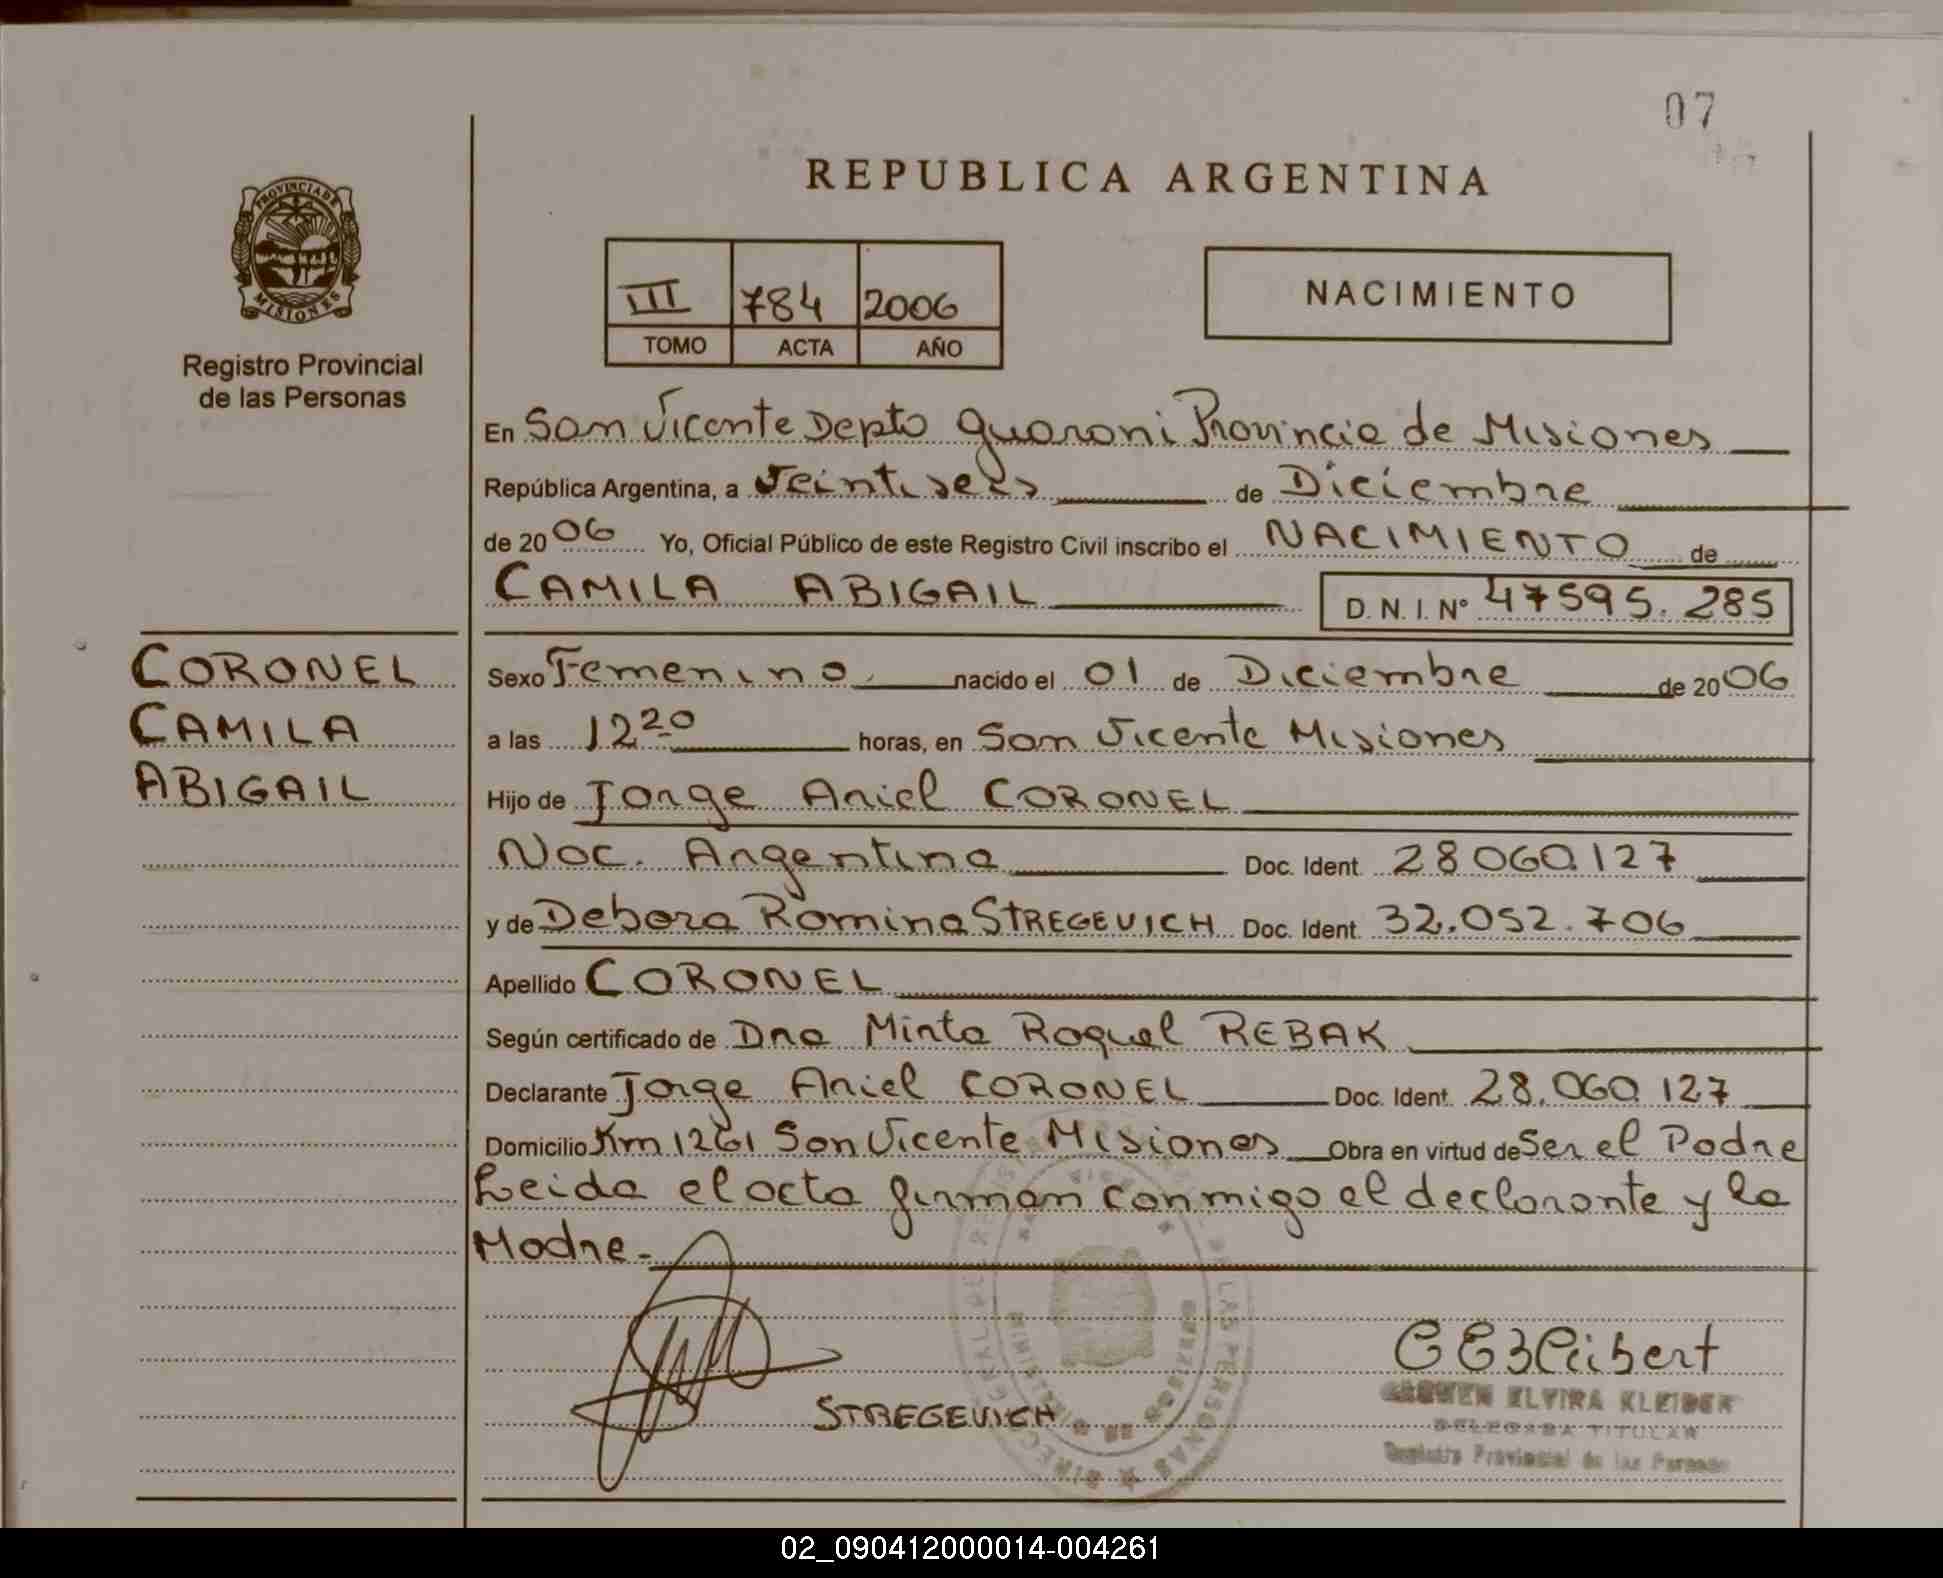 07
REPUBLICA ARGENTINA
PROVINCIA DE
MISIONES
Registro Provincial
de las Personas
III 784 2006
TOMO ACTA AÑO
NACIMIENTO
En San Vicente Depto Guarani Provincia de Misiones
República Argentina, a Veintiseis de Diciembre
de 2006 Yo, Oficial Público de este Registro Civil inscribo el NACIMIENTO de
CAMILA ABIGAIL D. N. I. Nº 47595.285
CORONEL
CAMILA
ABIGAIL
Sexo Femenino nacido el 01 de Diciembre de 2006
a las 12 20 horas, en San Vicente Misiones
Hijo de Jorge Ariel CORONEL
Nac. Argentina Doc. Ident. 28 060.127
y de Debora Romina STREGEVICH Doc. Ident. 32.052.706
Apellido CORONEL
Según certificado de Dra Mirta Raquel REBAK
Declarante Jorge Ariel CORONEL Doc. Ident. 28.060.127
Domicilio Km 1261 San Vicente Misiones Obra en virtud de Ser el Padre
Leida el acta firman conmigo el declarante y la
Madre.-
STREGEVICH
CARMEN ELVIRA KLEIBER
DELEGADA TITULAR
Registro Provincial de las Personas
02_090412000014-004261